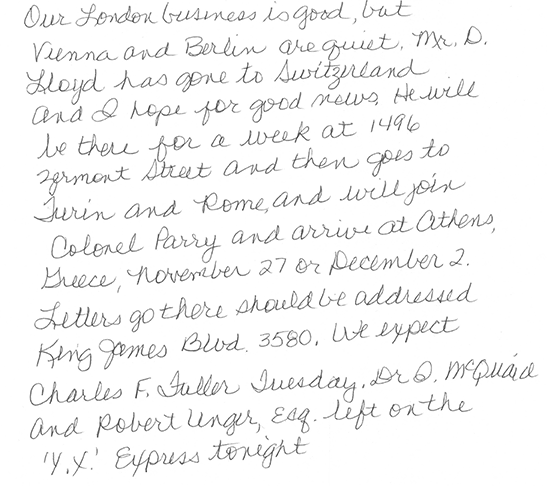 Our London business is good, but
Vienna and Berlin are quiet. Mr. D.
Lloyd has gone to Switzerland
and I hope for good news. He will
be there for a week at 1496
Zermont Street and then goes to
Turin and Rome, and will join
Colonel Parry and arrive at Athens,
Greece, November 27 or December 2.
Letters go there should be addressed
King James Blvd. 3580. We expect
Charles F. Fuller Tuesday. Dr. D. McQuaid
and Robert Unger, Esq. left on the
'Y.X.' Express tonight